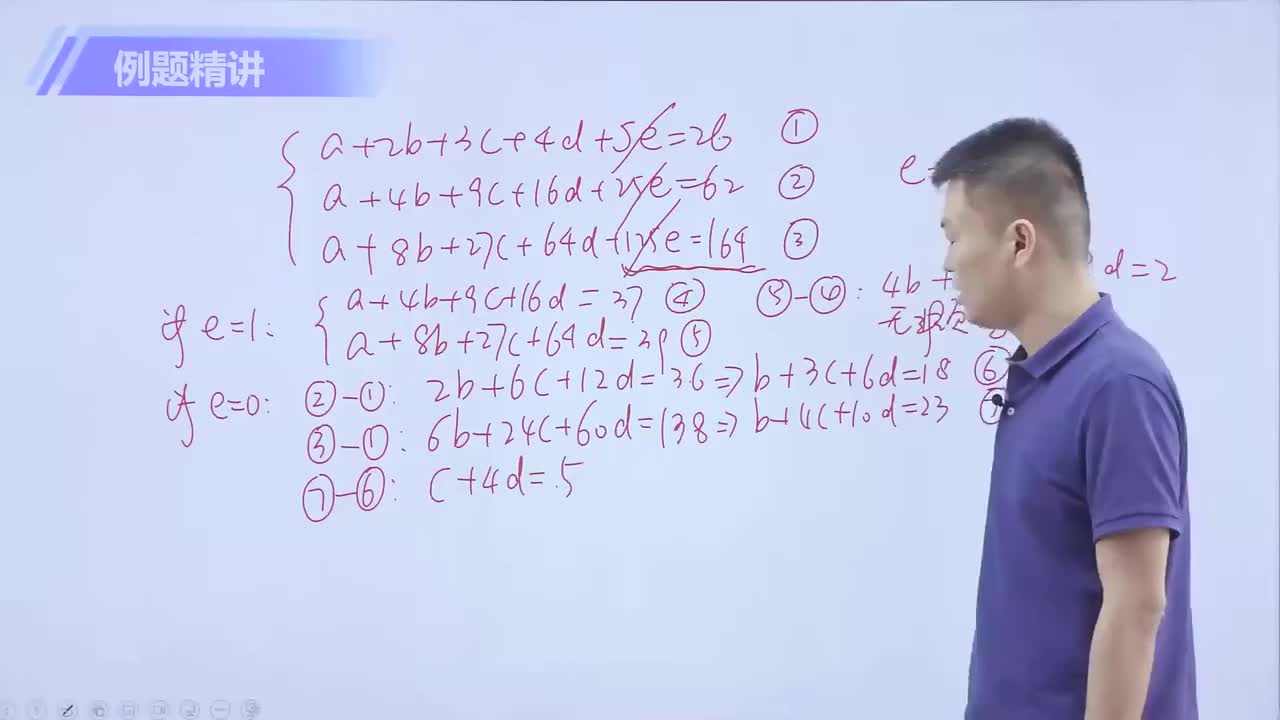 例题精讲
a+2b+3c+4d+5e=26 ①
a+4b+9c+16d+25e=62 ②
a+8b+27c+64d+125e=164 ③
e=
if e=1: a+4b+9c+16d=37 ④
a+8b+27c+64d=39 ⑤
⑤-④: 4b+ d=2
无
if e=0: ②-①: 2b+6c+12d=36=>b+3c+6d=18 ⑥
③-①: 6b+24c+60d=138=>b+4c+10d=23
⑦-⑥: c+4d=5